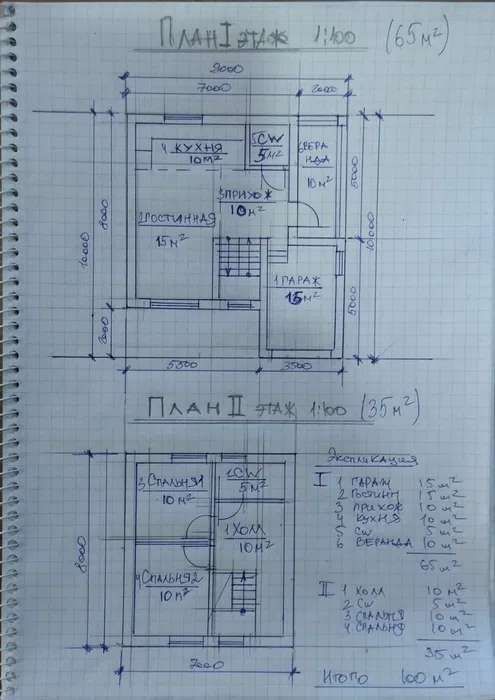 ПЛАН I ЭТАЖ 1:100 (65 м²)
9000
7000 2000
4 КУХНЯ 10 м²
5 CW 5 м²
6 ВЕРАНДА 10 м²
3 ПРИХОЖ 10 м²
2 ГОСТИННАЯ 15 м²
1 ГАРАЖ 15 м²
10000
8000
2000
5000
10000
5000
5500 3500
ПЛАН II ЭТАЖ 1:100 (35 м²)
3 СПАЛЬНЯ1 10 м²
2 CW 5 м²
1 ХОЛЛ 10 м²
4 СПАЛЬНЯ2 10 м²
8000
7000
Экспликация
I 1 ГАРАЖ 15 м²
2 ГОСТИНН 15 м²
3 ПРИХОЖ 10 м²
4 КУХНЯ 10 м²
5 CW 5 м²
6 ВЕРАНДА 10 м²
65 м²
II 1 ХОЛЛ 10 м²
2 CW 5 м²
3 СПАЛЬНЯ 10 м²
4 СПАЛЬНЯ 10 м²
35 м²
ИТОГО 100 м²